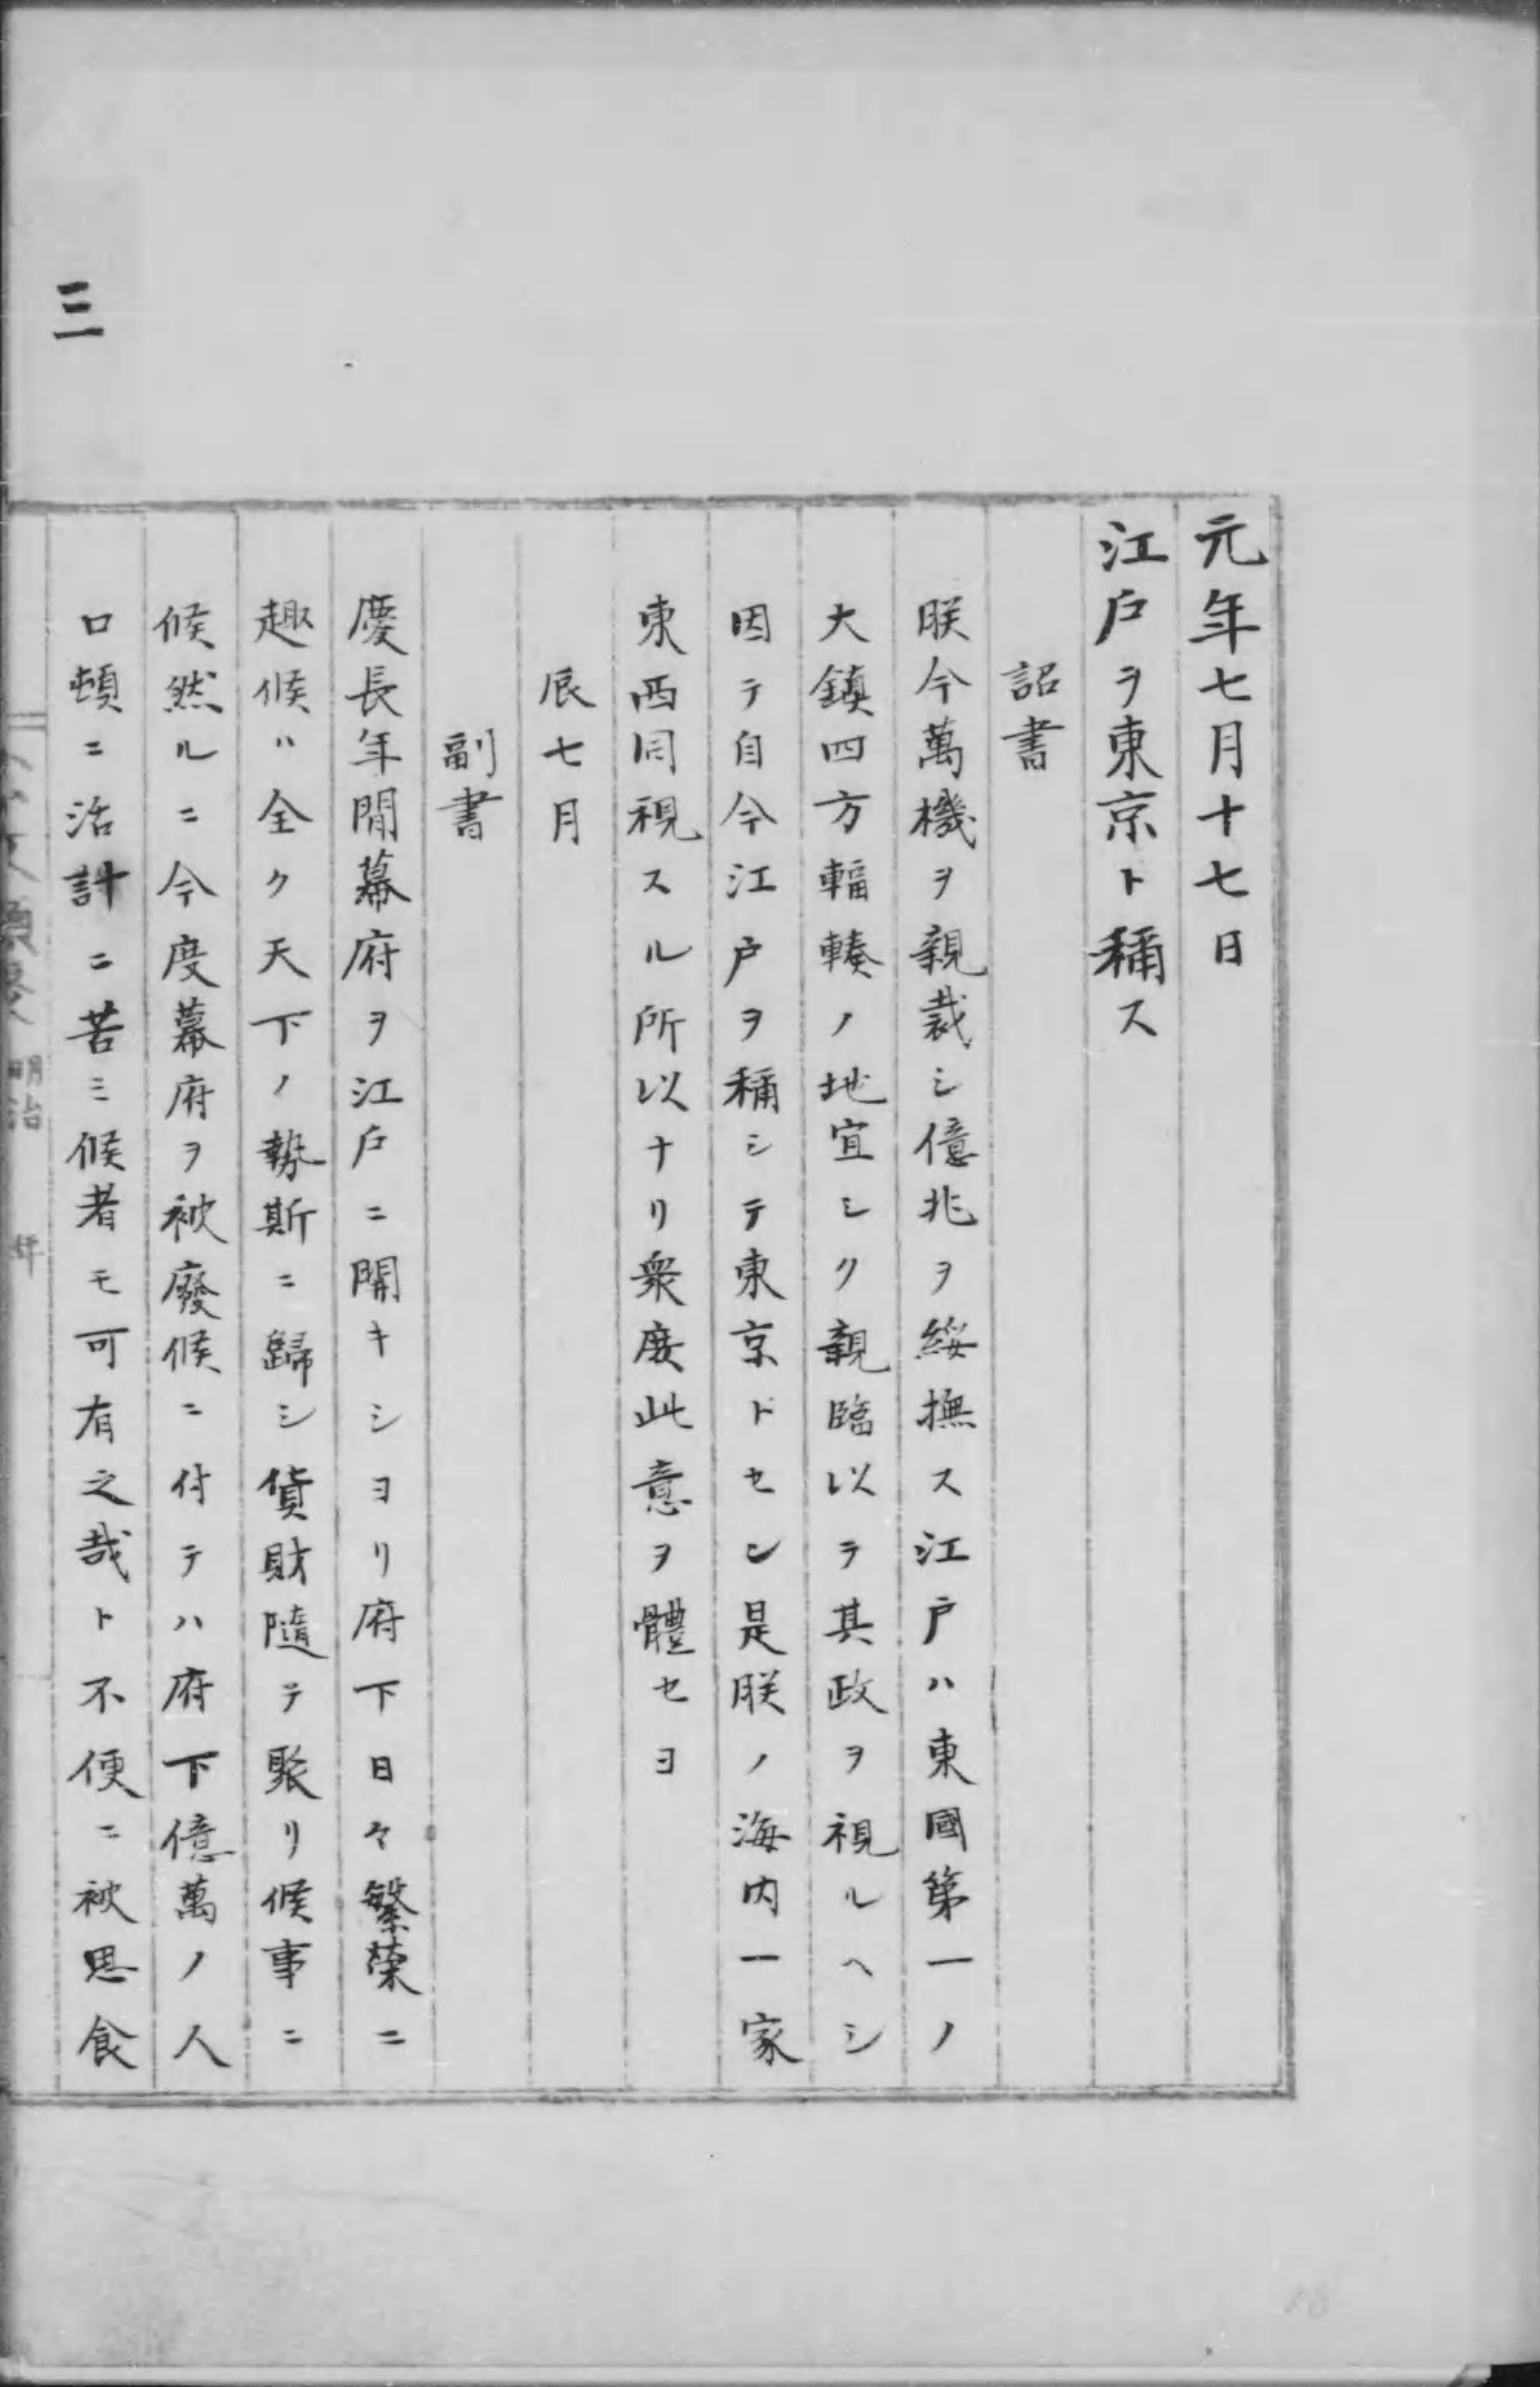 元年七月十七日
江戸ヲ東京ト稱ス
詔書
朕今萬機ヲ親裁シ億兆ヲ綏撫ス江戸ハ東國第一ノ
大鎮四方輻輳ノ地宜シク親臨以テ其政ヲ視ルヘシ
因テ自今江戸ヲ稱シテ東京トセン是朕ノ海内一家
東西同視スル所以ナリ衆庶此意ヲ體セヨ
辰七月
副書
慶長年間幕府ヲ江戸ニ開キシヨリ府下日々繁榮ニ
趣候ハ全ク天下ノ勢斯ニ歸シ貨財隨テ聚リ候事ニ
候然ルニ今度幕府ヲ被廢候ニ付テハ府下億萬ノ人
口頓ニ活計ニ苦ミ候者モ可有之哉ト不便ニ被思食
三